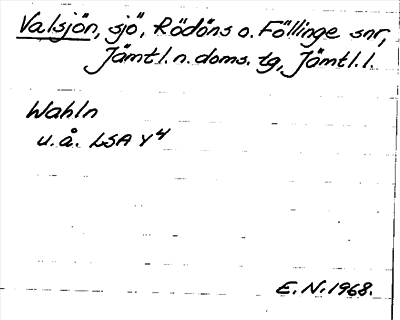 Valsjön, sjö, Rödöns o. Föllinge snr,
Jämtl. n. doms. tg, Jämtl. l.
Wahln
u. å. LSA Y4
E. N. 1968.